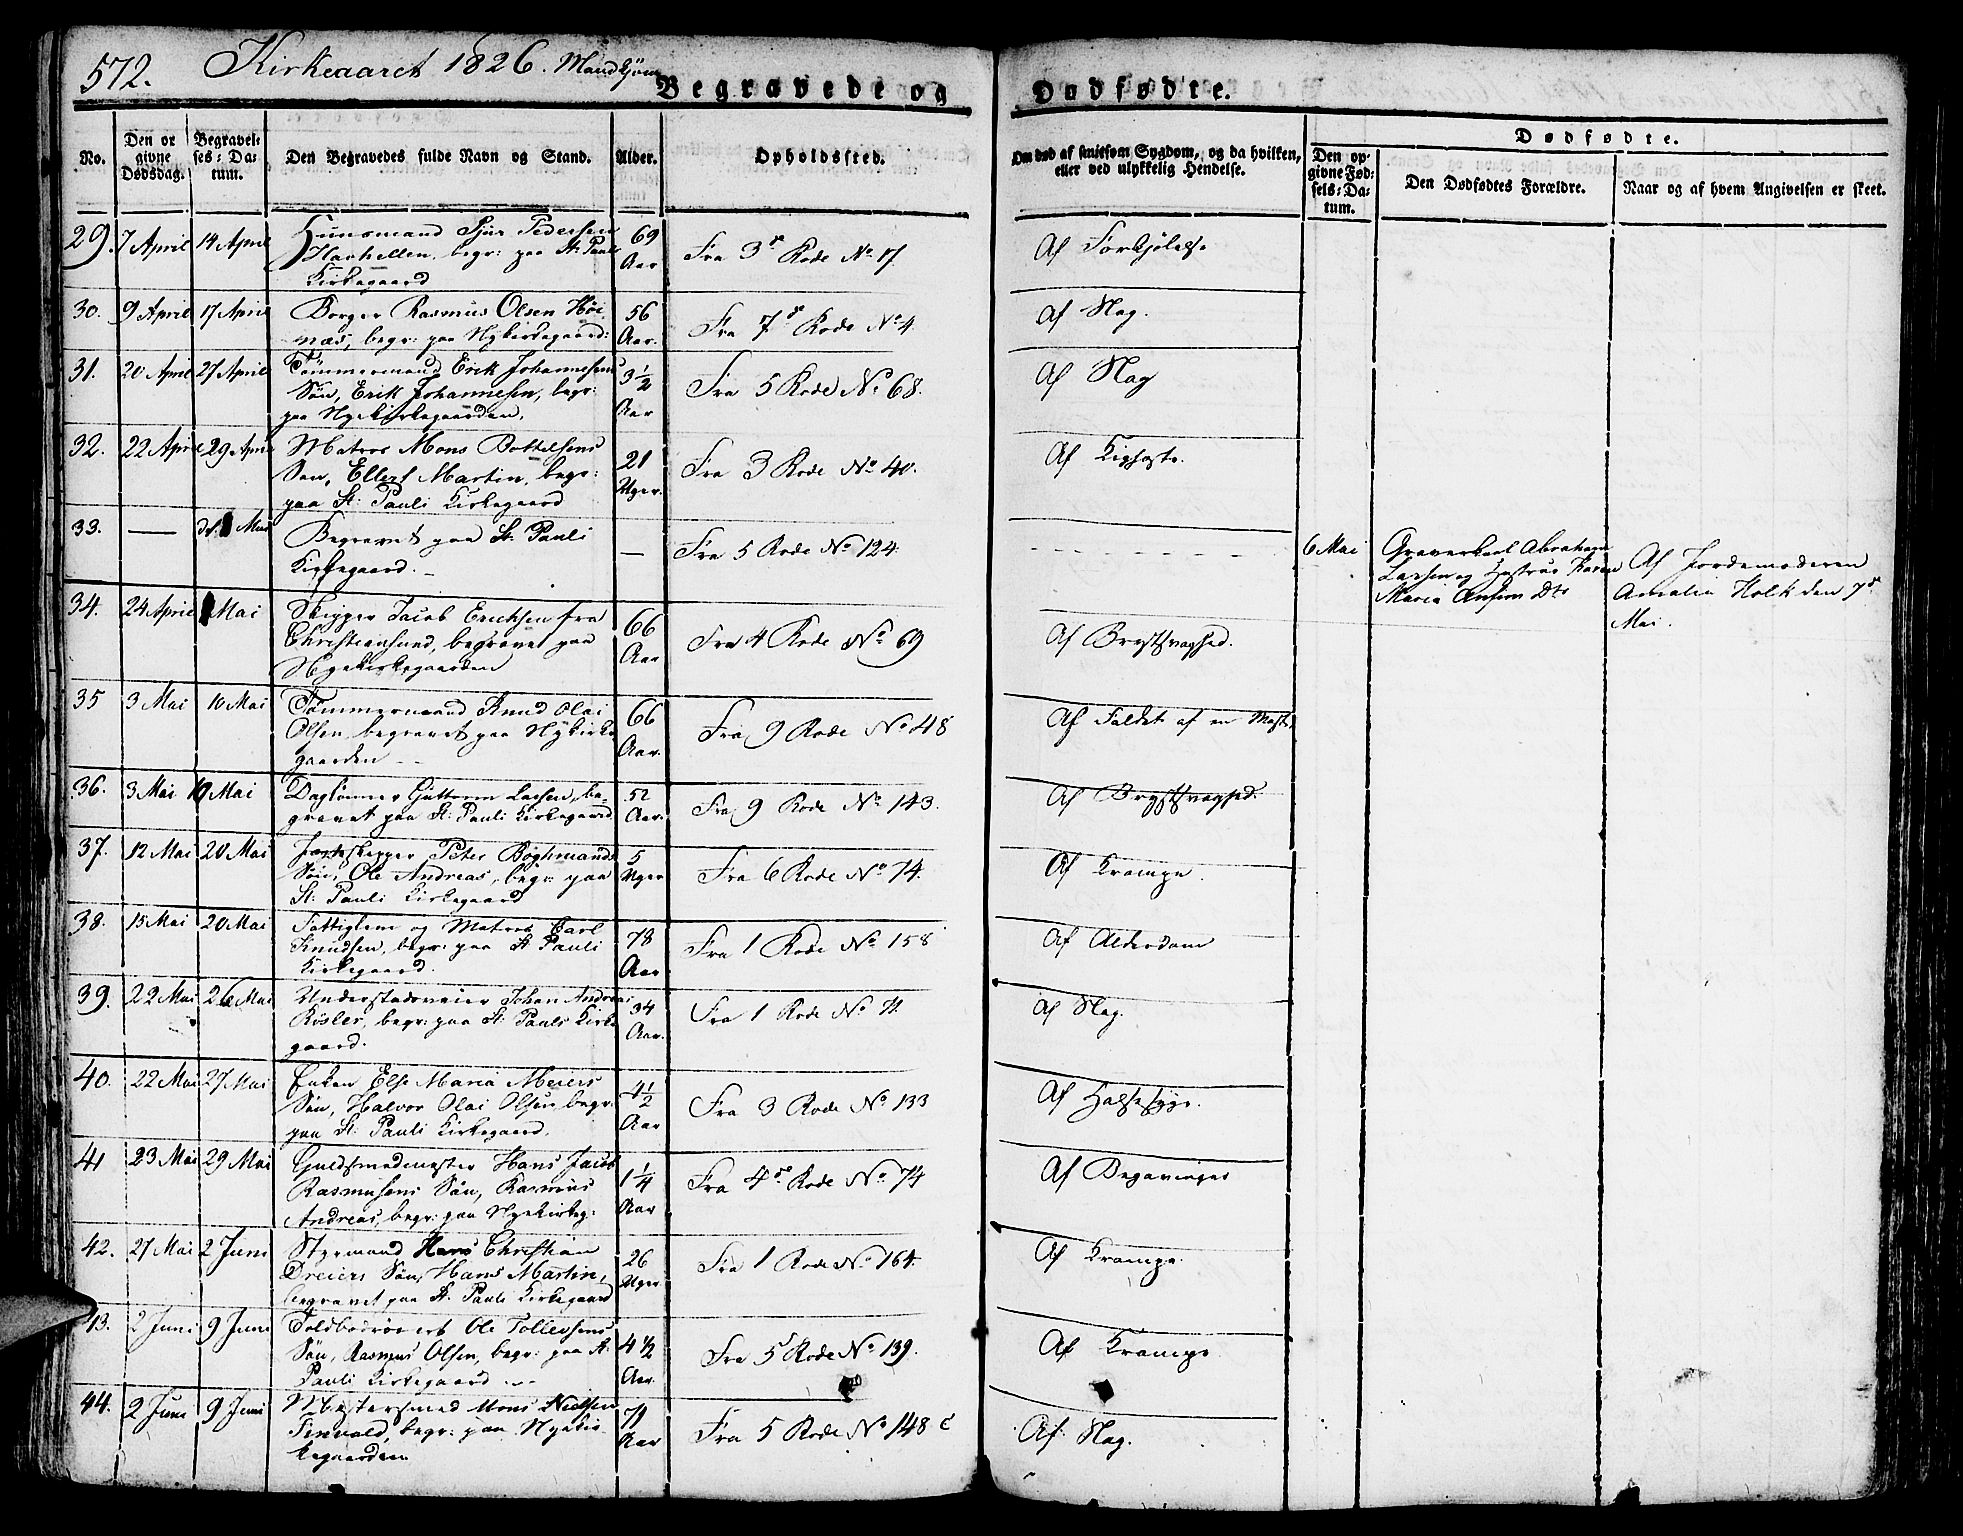 572. Kirkeaaret 1826. Mandkjøn
Begravede og Dødfødte.
Dødfødte.
No.
Den opgivne Dødsdag.
Begravelses-Datum.
Den Begravedes fulde Navn og Stand.
Alder.
Opholdssted.
Om død af smitsom Sygdom, og da hvilken, eller ved ulykkelig Hendelse.
Den opgivne Fødsels-Datum.
Den Dødfødtes Forældre.
Naar og af hvem Angivelsen er skeet.
29. 7 April 14 April Huusmand Siur Pedersen 69
Havhellen, begr: paa St: Pauli Aar Fra 3de Rode No 17. Af Forkjølelse
Kirkegaard
30. 9 April 17 April Borger Rasmus Olsen Høi- 56
næs, begr: paa Nykirkegaard: Aar. Fra 7de Rode No 4. Af Slag.
31. 20 April 27 April Tømmermand Erik Johannesens 3½
Søn, Erik Johannesen, begr: Fra 5 Rode No 68. Af Slag
paa Nyekirkegaarden. Aar
32. 22 April 29 April Matros Mons Bottelsens 21
Søn, Ellert Martin, begr: Fra 3 Rode No 40. Af Kighoste.
paa St: Pauli Kirkegaard Uger.
33. — Mai Begravet paa St: Pauli — Fra 5 Rode No 124.
Kirkegaard. –
6 Mai
Graverkarl Abraham
Larsen og Hustrue Karen
Maria Ansim Dtr
Af Jordemoderen
Amalia Holck den 7de
Mai.
34. 24 April Mai Skipper Jacob Ericksen fra 66
Christiansund, begravet paa Aar Fra 4 Rode No 69 Af Brystsvaghed.
Nyekirkegaarden
35 3 Mai 10 Mai Tømmermand Knud Olai 66
Olsen begravet paa Nykirke Aar. Fra 9 Rode No 48 Af Faldet af en Mast.
gaarden – –
36. 3 Mai 10 Mai Dagleier Guttorm Larsen, be- 52
gravet paa St: Pauli Kirkegaard Aar. Fra 9 Rode No 143. Af Brystsvaghed.
37. 12 Mai 20 Mai Peter Böghmands 5
Søn, Ole Andreas, begr: paa Uger Fra 6 Rode No 74. Af Krampe.
St: Pauli Kirkegaard
38. 15 Mai 20 Mai Fattiglem og Matros Carl 78
Knudsen, begr: paa St Pauli Aar Fra 1 Rode No 158 Af Alderdom
Kirkegaard.
39. 22 Mai 26 Mai Johan Andreas 34
Rösler, begr: paa St: Pauli Kirke Aar. Fra 1 Rode No Af Slag.
gaard.
40. 22 Mai 27 Mai Enken Else Maria Meiers 4½
Søn, Halvor Olai Olsen begr: Aar Fra 3 Rode No 133 Af Halsesyge.
paa St: Pauli Kirkegaard.
41 23 Mai 29 Mai Guldsmedmester Hans Jacob 1¼
Rasmusens Søn, Rasmus Aar Fra 4de Rode No 74 Af Begavinger
Andreas, begr: paa Nyekirkeg:
42. 27 Mai 2 Juni Styrmand Hans Christian 26
Dreiers Søn, Hans Martin, Uger Fra 1 Rode No 164. Af Krampe.
begravet paa St: Pauli Kirkegaard
43. 2 Juni 9 Juni Toldbodroert Ole Tollevsens 4½
Søn, Rasmus Olsen, begr: paa St: Aar. Fra 5 Rode No 139. Af Krampe
Pauli Kirkegaard –
44. 2 Juni 9 Juni Mestersmed Mons Nielsen
Tenvold, begr: paa Nyekir- Aar Fra 5 Rode No 148 c Af Slag.
kegaarden